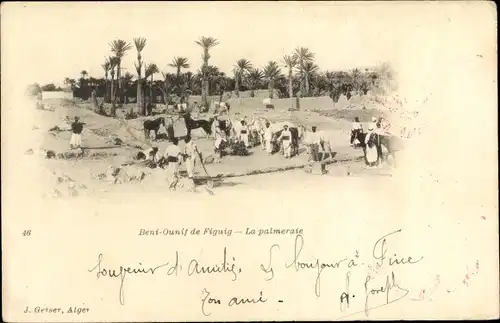 46 Beni-Ounif de Figuig - La palmeraie
Souvenir d'Amitié, & bonjour à Fine
Ton ami - A. Joseph
J. Geiser, Alger